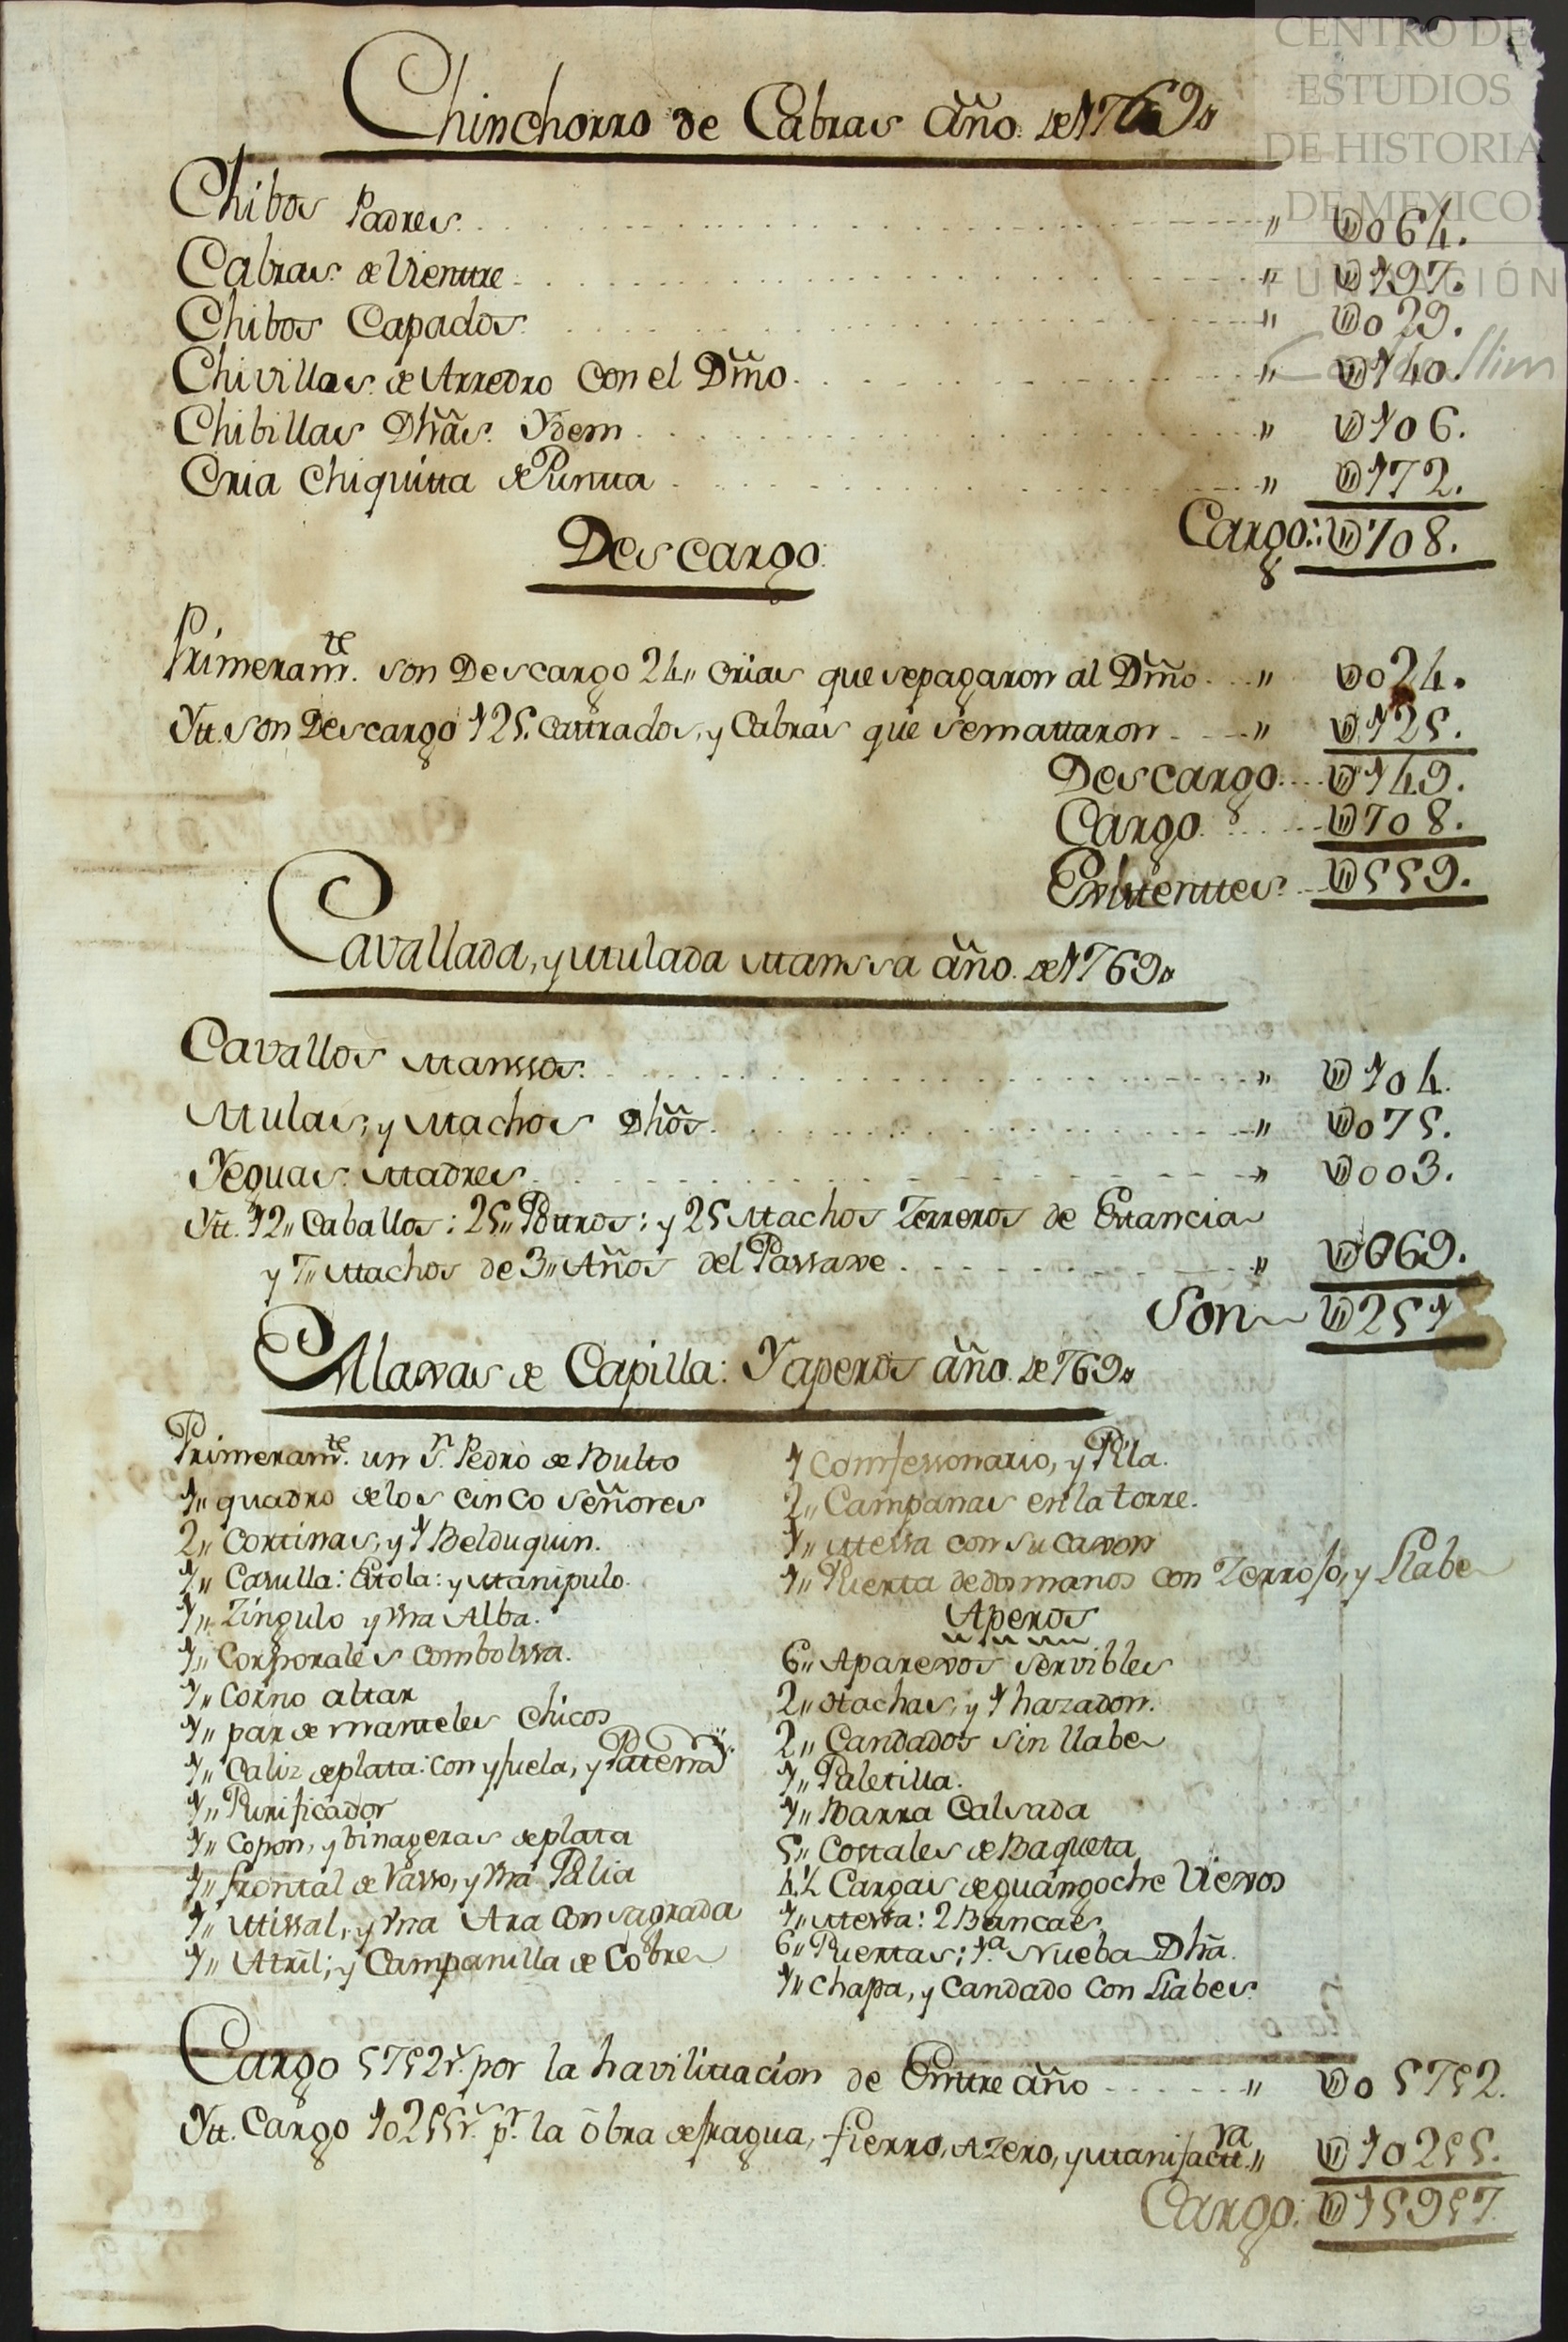 CENTRO DE
ESTUDIOS
DE HISTORIA
DE MEXICO
FUNDACIÓN
Chinchorro de Cabras año. de 1769"
Chibos Padres. " U064.
Cabras de Vienttre " U197.
Chibos Capados " U029.
Chivillas de Arredro con el Dmõ. " U140.
Chibillas Dhãs. Ydem " U106.
Cria chiquitta de Puntta " U172.
Cargo: U708.
Descargo.
Primeramte. son Descargo 24" crias que se pagaron al Dmõ. " U024.
Ytt. son Descargo 125. Castrados, y Cabras que se mattaron " U125.
Descargo U149.
Cargo U708.
Existenttes U559.
Cavallada, y Mulada Manssa año. de 1769"
Cavallos Manssos. " U104.
Mulas, y Machos Dhõs. " U075.
Yeguas Madres " U003.
Ytt. 12" Caballos: 25" Pottros: y 25 Machos Zerreros de Estancia
y 7" Machos de 3" Años del Passaxe " U069.
Son U251
Alaxas de Capilla: Y aperos año. de 769"
Primeramte. un Sn. Pedro de Bulto
1" quadro de los cinco señores
2" Cortinas, y 1 Belduquin.
1" Casulla: Estola: y Manipulo.
1" Zingulo y Vna Alba.
1" Corporales com bolssa.
1" Corno altar
1" par de manteles chicos
1" Caliz de plata: con yjuela, y Patena
1" Purificador
1" Copon, y binageras de plata
1" frontal de Rasso, y Vna Palia
1" Missal, y Vna Ara Consagrada
1" Atril; y Campanilla de Cobre
1 Comfessonario, y Pila.
2" Campanas en la torre.
1" Messa con su caxon
1" Puerta de dos manos con Zerrojo, y Llabe
Aperos
6" Aparexos servibles
2" Hachas, y 1 hazadon.
2" Candados sin llabe
1" Paletilla.
1" Barra Calsada
5" Costales de Baqueta
4½ Cargas de guangoche Viexos
1" Messa: 2 Bancas
6" Puertas; 1a. Nueba Dhã.
1" Chapa, y Candado con Llabes.
Cargo 5752 rs. por la havilittacion de Enttre año " U05752.
Ytt. Cargo 10255 rs. pr. la obra de fragua, fierro, Azero, y Manifacttra. " U10255.
Cargo: U15957.